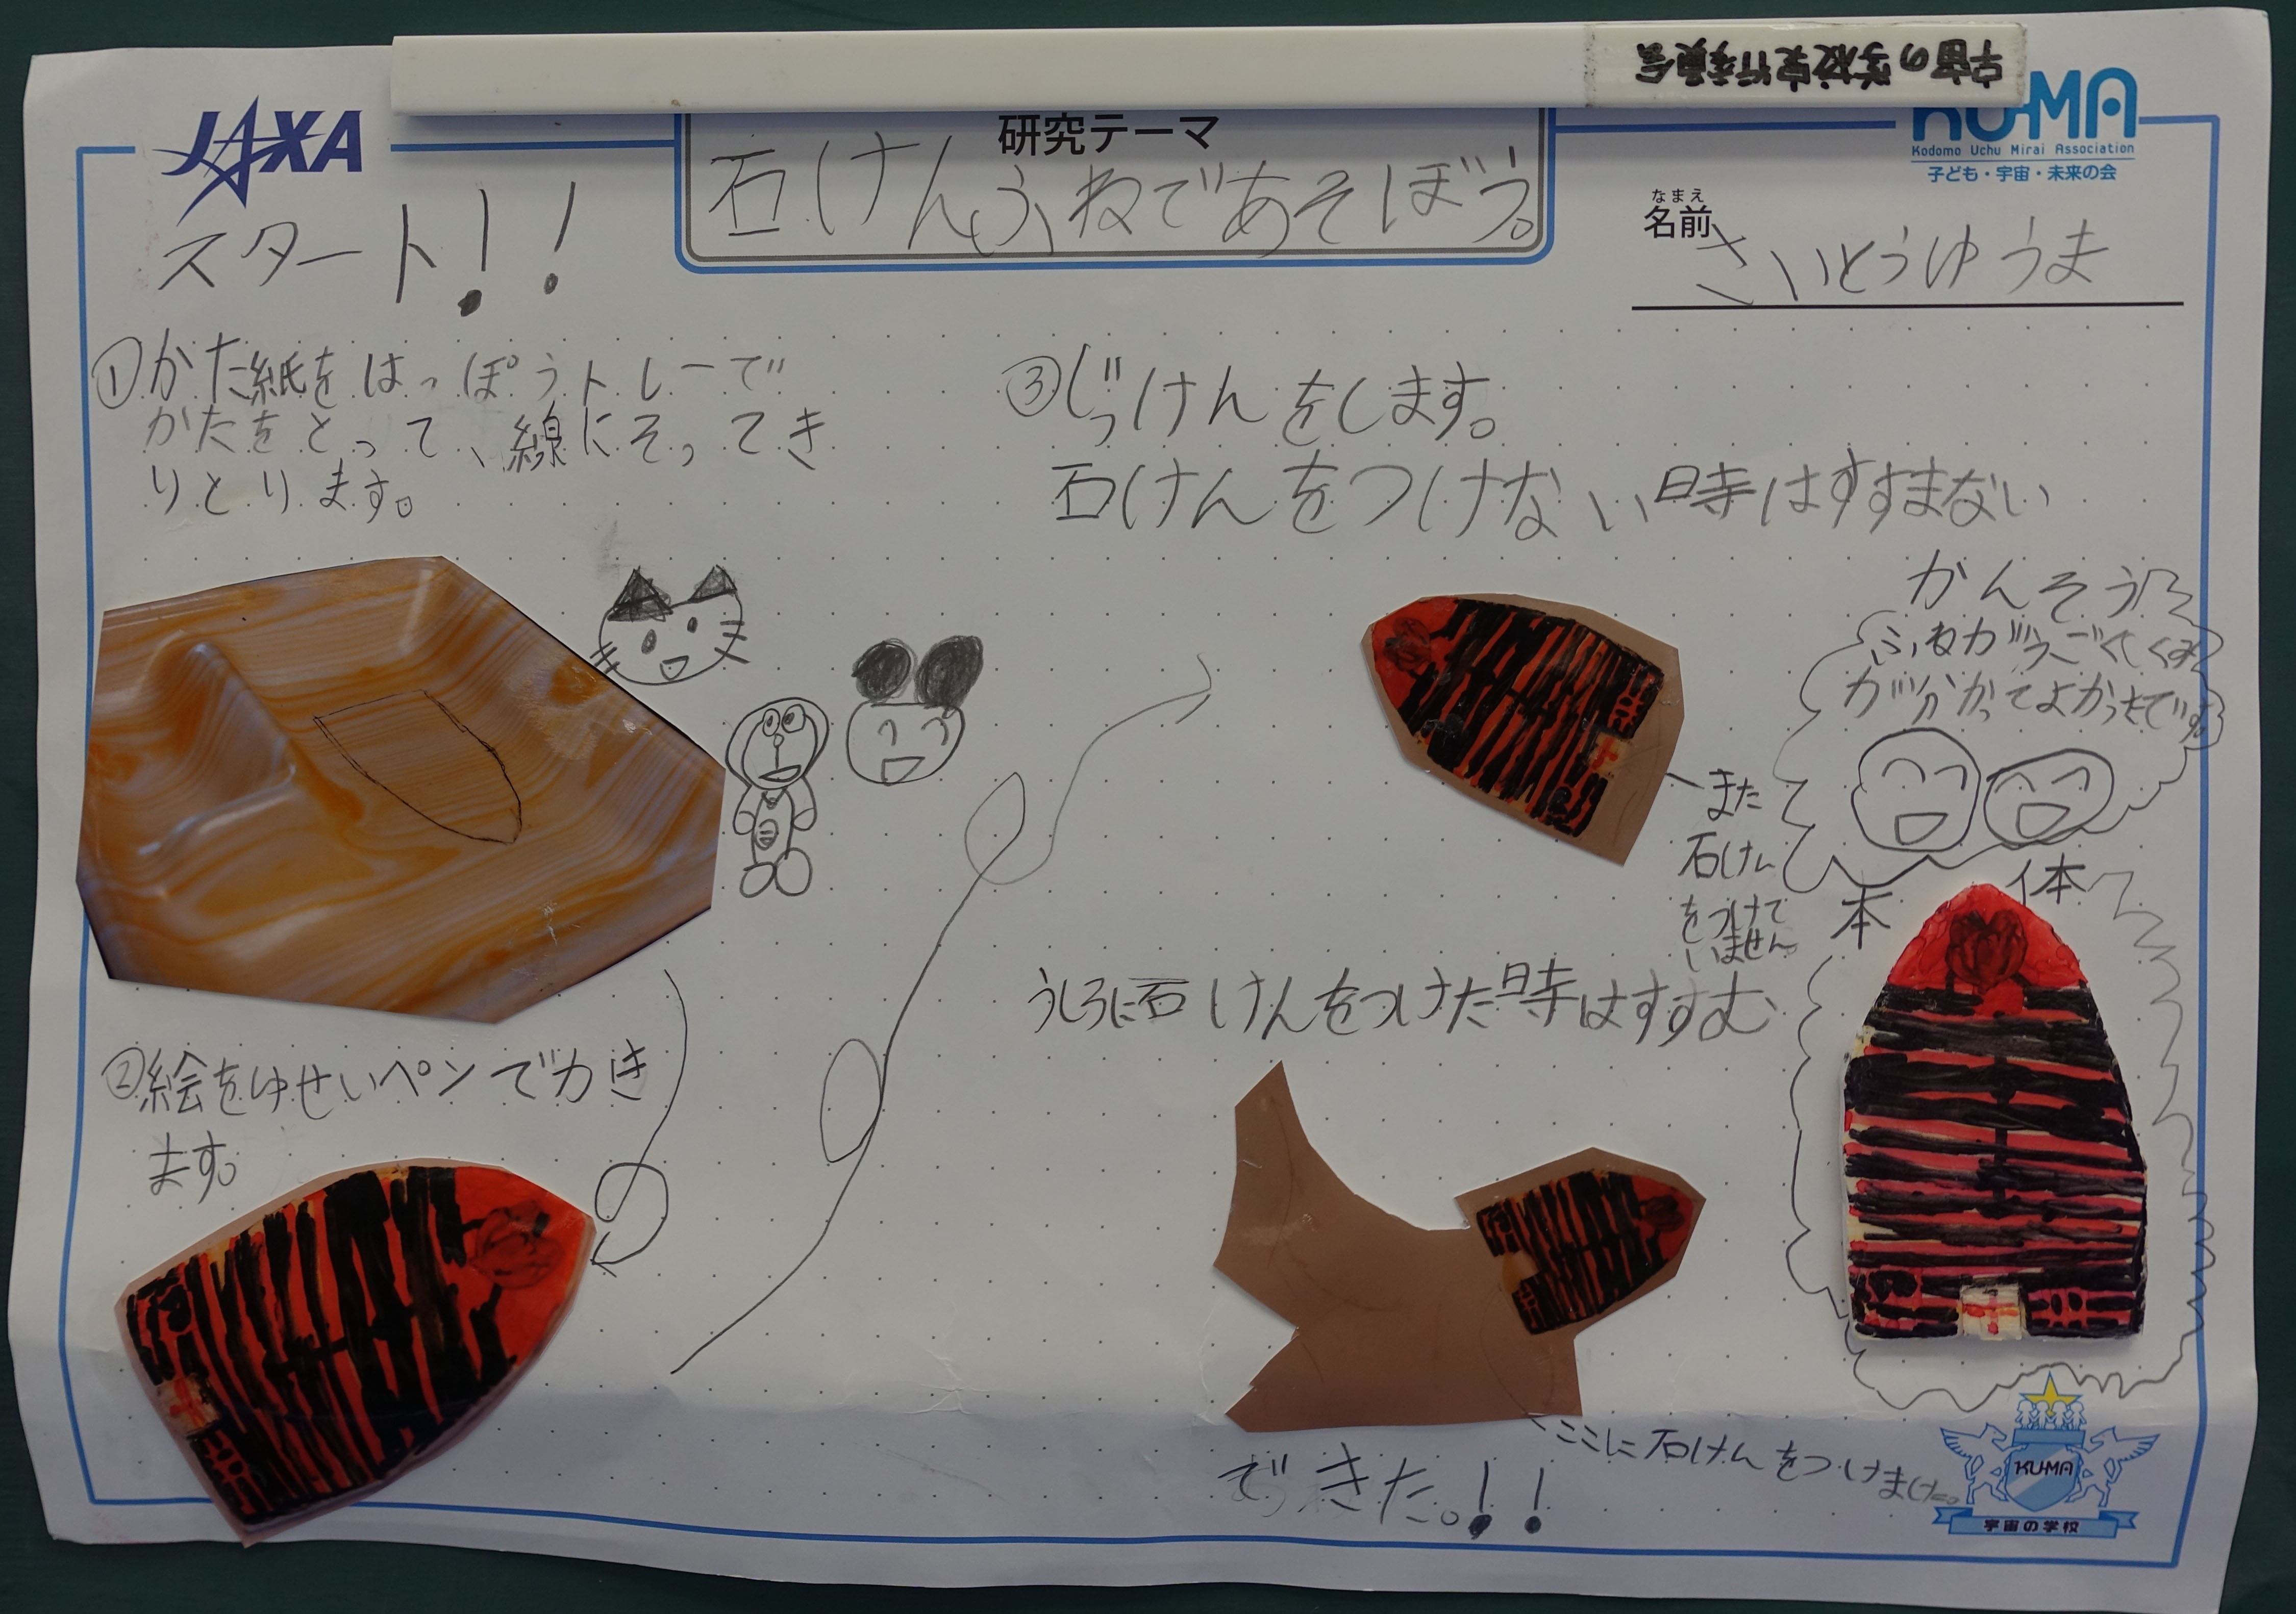 宇宙の学校実行委員会
JAXA
KU-MA
Kodomo Uchu Mirai Association
子ども・宇宙・未来の会
研究テーマ
石けんふねであそぼう。
なまえ
名前
さいとうゆうま
スタート!!
①かた紙をはっぽうトレーで
かたをとって、線にそってき
りとります。
②絵をゆせいペンでかき
ます。
③じっけんをします。
石けんをつけない時はすすまない
また
石けん
をつけて
いません
うしろに石けんをつけた時はすすむ
ここに石けんをつけました。
できた。!!
かんそう
ふねがうごくしくみ
が分かってよかったです。
本体
KU-MA
宇宙の学校